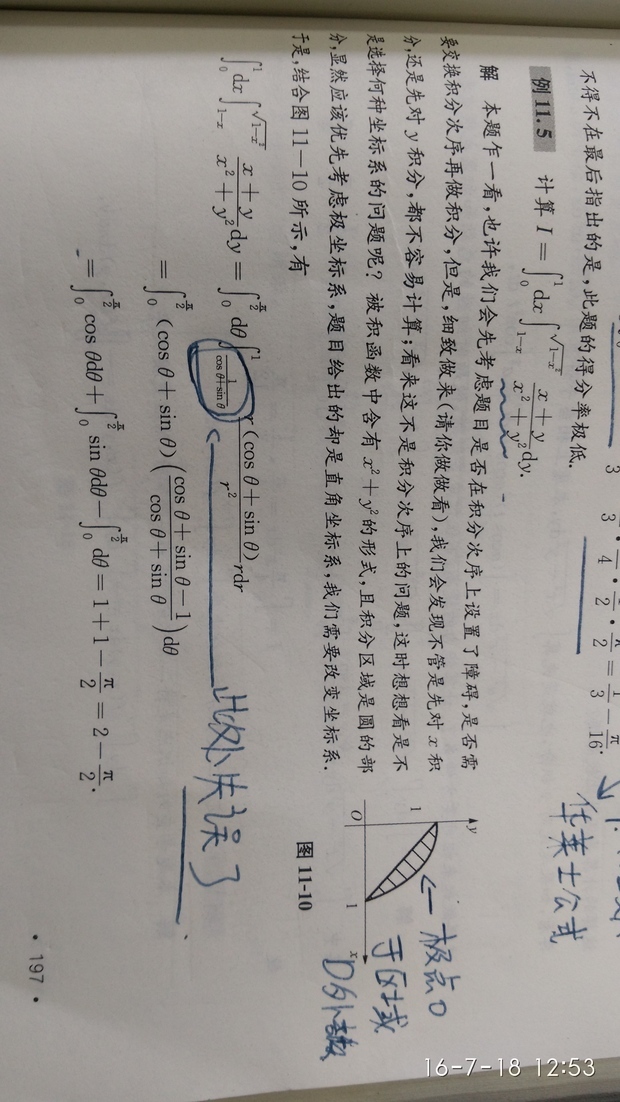 不得不在最后指出的是,此题的得分率极低.
华莱士公式
例 11.5 计算 I = ∫₀¹ dx ∫_{1-x}^{√(1-x²)} (x+y)/(x²+y²) dy.
解 本题乍一看,也许我们会先考虑题目是否在积分次序上设置了障碍,是否需
要交换积分次序再做积分,但是,细致做来(请你做做看),我们会发现不管是先对 x 积
分,还是先对 y 积分,都不容易计算;看来这不是积分次序上的问题,这时想想看是不
是选择何种坐标系的问题呢?被积函数中含有 x²+y² 的形式,且积分区域是圆的部
分,显然应该优先考虑极坐标系,题目给出的却是直角坐标系,我们需要改变坐标系.
于是,结合图 11-10 所示,有
∫₀¹ dx ∫_{1-x}^{√(1-x²)} (x+y)/(x²+y²) dy = ∫₀^{π/2} dθ ∫_{1/(cos θ+sin θ)}^{1} r(cos θ+sin θ)/r² rdr
= ∫₀^{π/2} (cos θ+sin θ)((cos θ+sin θ-1)/(cos θ+sin θ))dθ
= ∫₀^{π/2} cos θdθ + ∫₀^{π/2} sin θdθ - ∫₀^{π/2} dθ = 1+1-π/2 = 2-π/2.
y
1
O
1
x
图 11-10
极点O
于区域
D外
此处失误了
· 197 ·
16-7-18 12:53